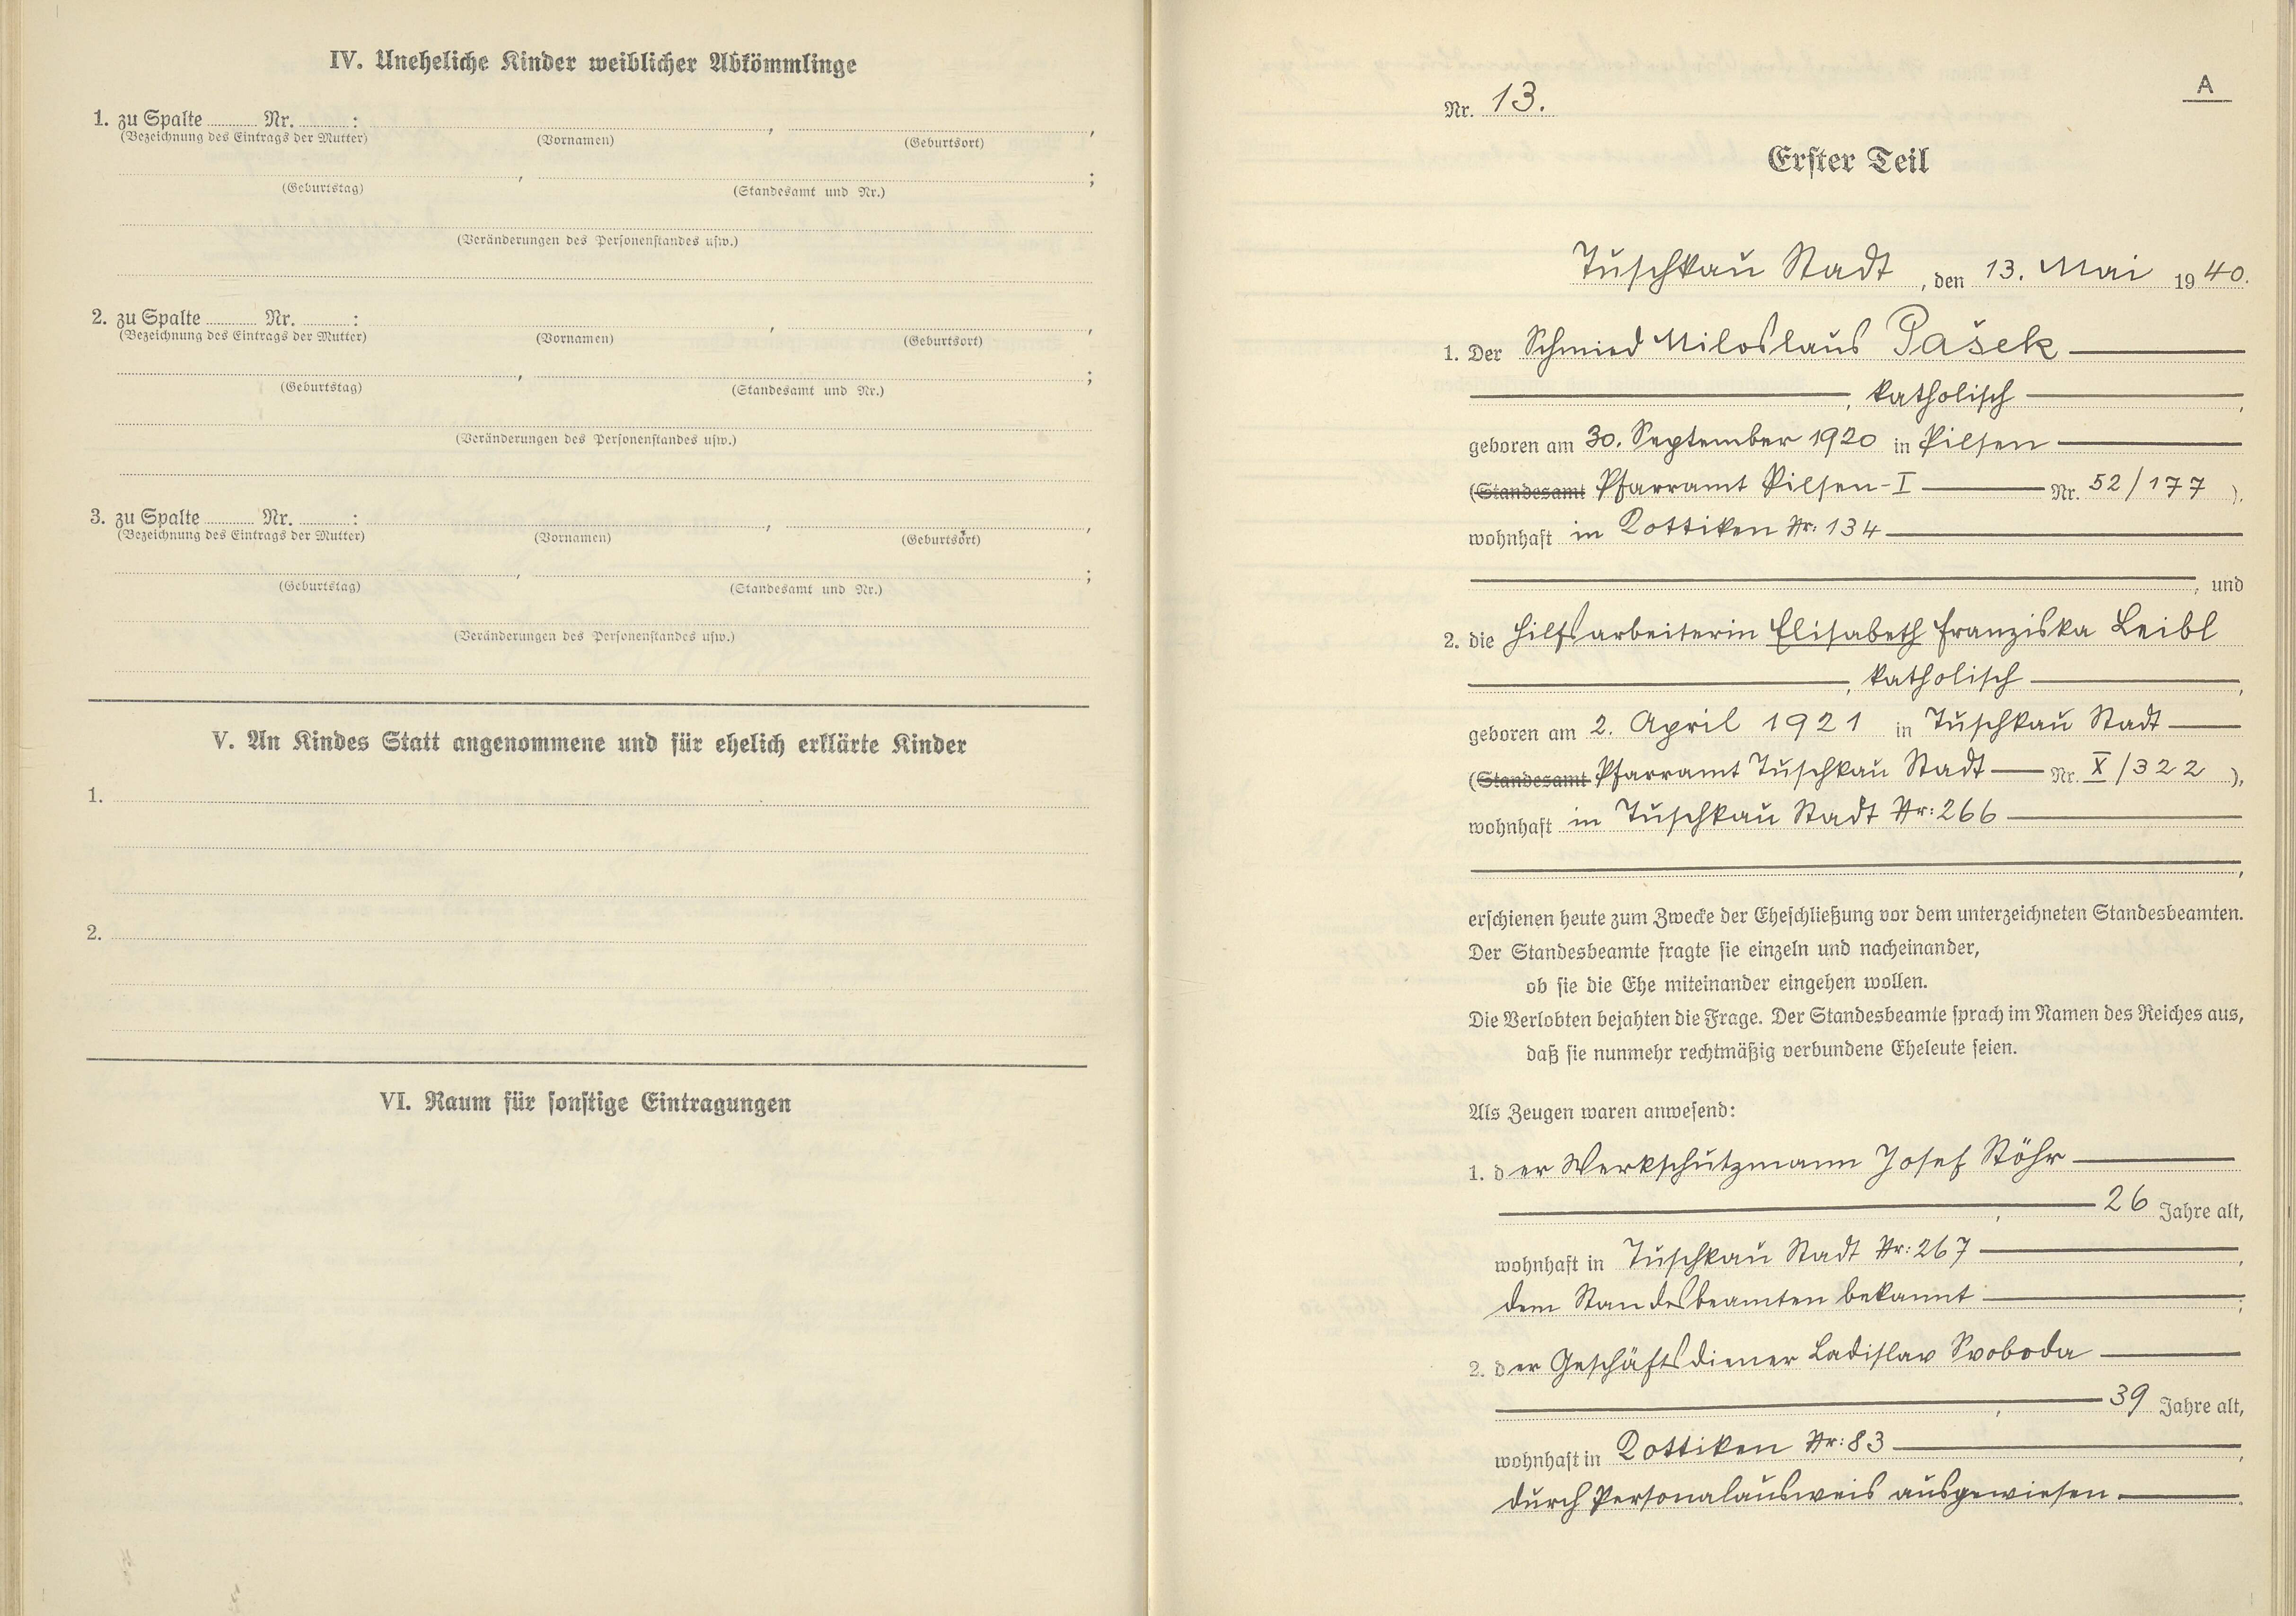 IV. Uneheliche Kinder weiblicher Abkömmlinge
1. zu Spalte ........ Nr. ........ : , ,
(Bezeichnung des Eintrags der Mutter) (Vornamen) (Geburtsort)
, ;
(Geburtstag) (Standesamt und Nr.)
(Veränderungen des Personenstandes usw.)
2. zu Spalte ........ Nr. ........ : , ,
(Bezeichnung des Eintrags der Mutter) (Vornamen) (Geburtsort)
, ;
(Geburtstag) (Standesamt und Nr.)
(Veränderungen des Personenstandes usw.)
3. zu Spalte ........ Nr. ........ : , ,
(Bezeichnung des Eintrags der Mutter) (Vornamen) (Geburtsort)
, ;
(Geburtstag) (Standesamt und Nr.)
(Veränderungen des Personenstandes usw.)
V. An Kindes Statt angenommene und für ehelich erklärte Kinder
1.
2.
VI. Raum für sonstige Eintragungen
A
Nr. 13.
Erster Teil
Tuschkau Stadt, den 13. Mai 1940.
1. Der Schmied Miloslaus Pašek
, katholisch ,
geboren am 30. September 1920 in Pilsen
(Standesamt Pfarramt Pilsen-I Nr. 52/177 ),
wohnhaft in Rottiken Nr: 134
, und
2. die Hilfsarbeiterin Elisabeth Franziska Leibl
, katholisch ,
geboren am 2. April 1921 in Tuschkau Stadt
(Standesamt Pfarramt Tuschkau Stadt Nr. X/322 ),
wohnhaft in Tuschkau Stadt Nr: 266
,
erschienen heute zum Zwecke der Eheschließung vor dem unterzeichneten Standesbeamten.
Der Standesbeamte fragte sie einzeln und nacheinander,
ob sie die Ehe miteinander eingehen wollen.
Die Verlobten bejahten die Frage. Der Standesbeamte sprach im Namen des Reiches aus,
daß sie nunmehr rechtmäßig verbundene Eheleute seien.
Als Zeugen waren anwesend:
1. der Werkschutzmann Josef Stöhr
, 26 Jahre alt,
wohnhaft in Tuschkau Stadt Nr: 267 ,
dem Standesbeamten bekannt ;
2. der Geschäftsdiener Ladislav Svoboda
, 39 Jahre alt,
wohnhaft in Rottiken Nr: 83 ,
durch Personalausweis ausgewiesen .